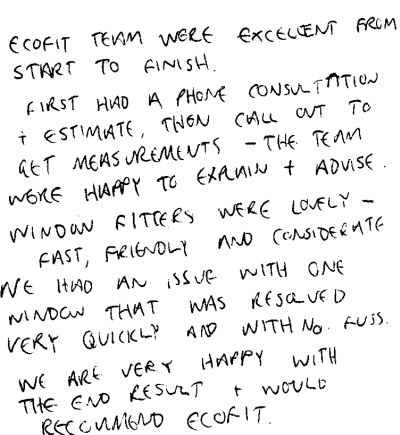 ECOFIT TEAM WERE EXCELLENT FROM
START TO FINISH.
FIRST HAD A PHONE CONSULTATION
+ ESTIMATE, THEN CALL OUT TO
GET MEASUREMENTS - THE TEAM
WERE HAPPY TO EXPLAIN + ADVISE.
WINDOW FITTERS WERE LOVELY -
FAST, FRIENDLY AND CONSIDERATE
WE HAD AN ISSUE WITH ONE
WINDOW THAT WAS RESOLVED
VERY QUICKLY AND WITH NO FUSS.
WE ARE VERY HAPPY WITH
THE END RESULT + WOULD
RECOMMEND ECOFIT.